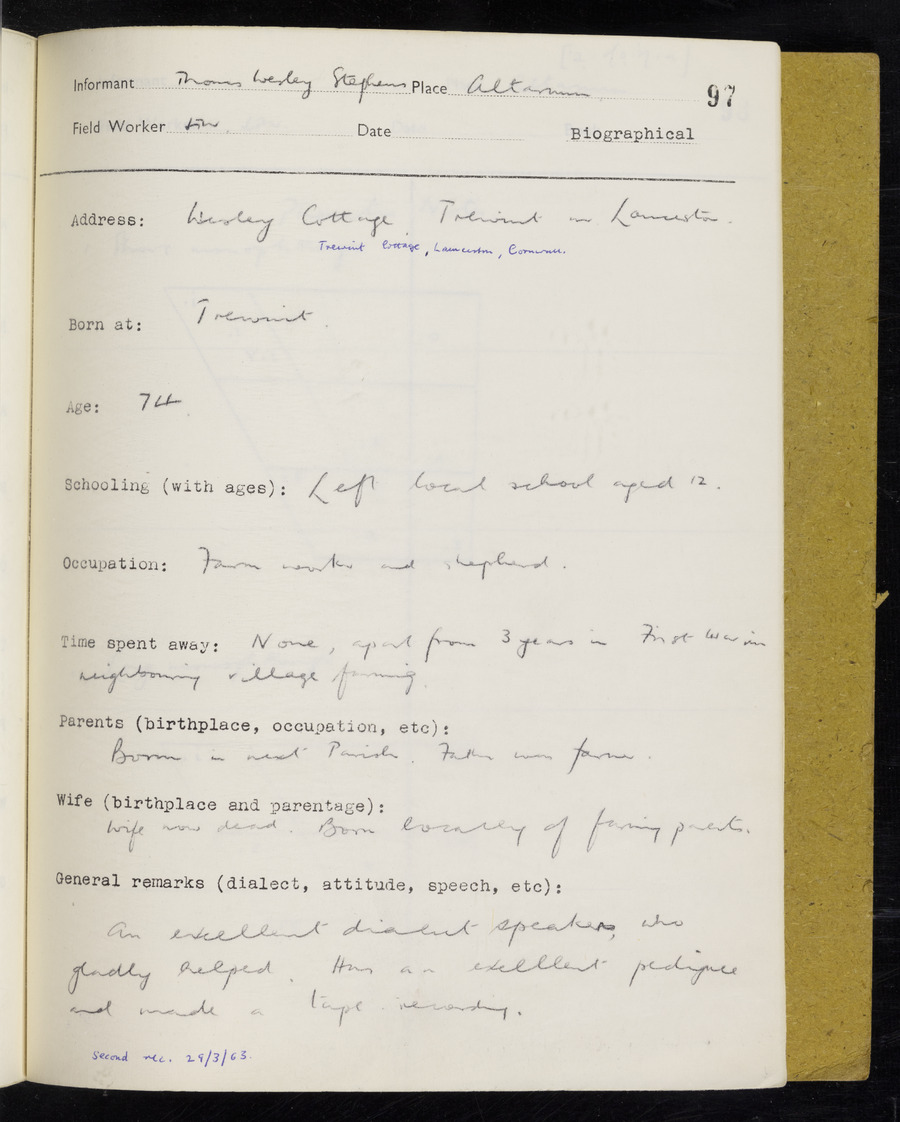 Informant Thomas Wesley Stephens Place Altarnun 97
Field Worker Date Biographical
Address: Wesley Cottage Trewint nr Launceston.
Trewint Cottage, Launceston, Cornwall.
Born at: Trewint.
Age: 74
Schooling (with ages): Left local school aged 12.
Occupation: Farm worker and shepherd.
Time spent away: None, apart from 3 years in First War in
neighbouring village farming.
Parents (birthplace, occupation, etc):
Born in next Parish. Father was farmer.
Wife (birthplace and parentage):
Wife now dead. Born locally of farming parents.
General remarks (dialect, attitude, speech, etc):
An excellent dialect speaker, who
gladly helped. Has an excellent pedigree
and made a tape-recording.
Second rec. 29/3/63.